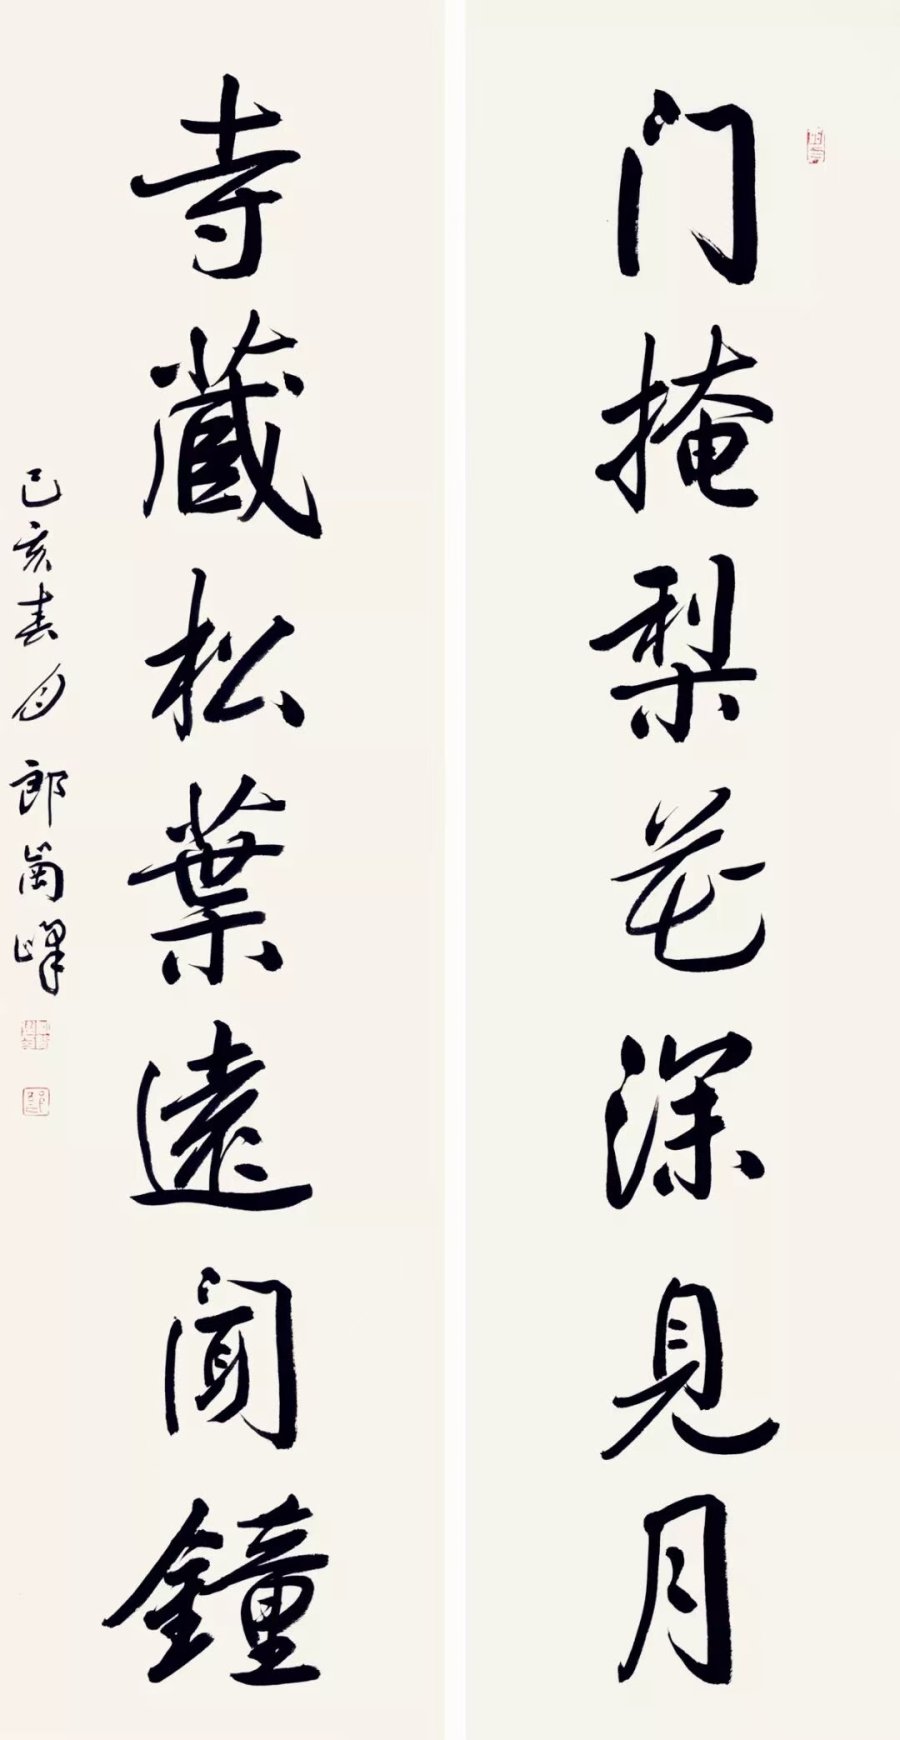 门掩梨花深见月
寺藏松葉遠闻鐘
己亥春月郎崗